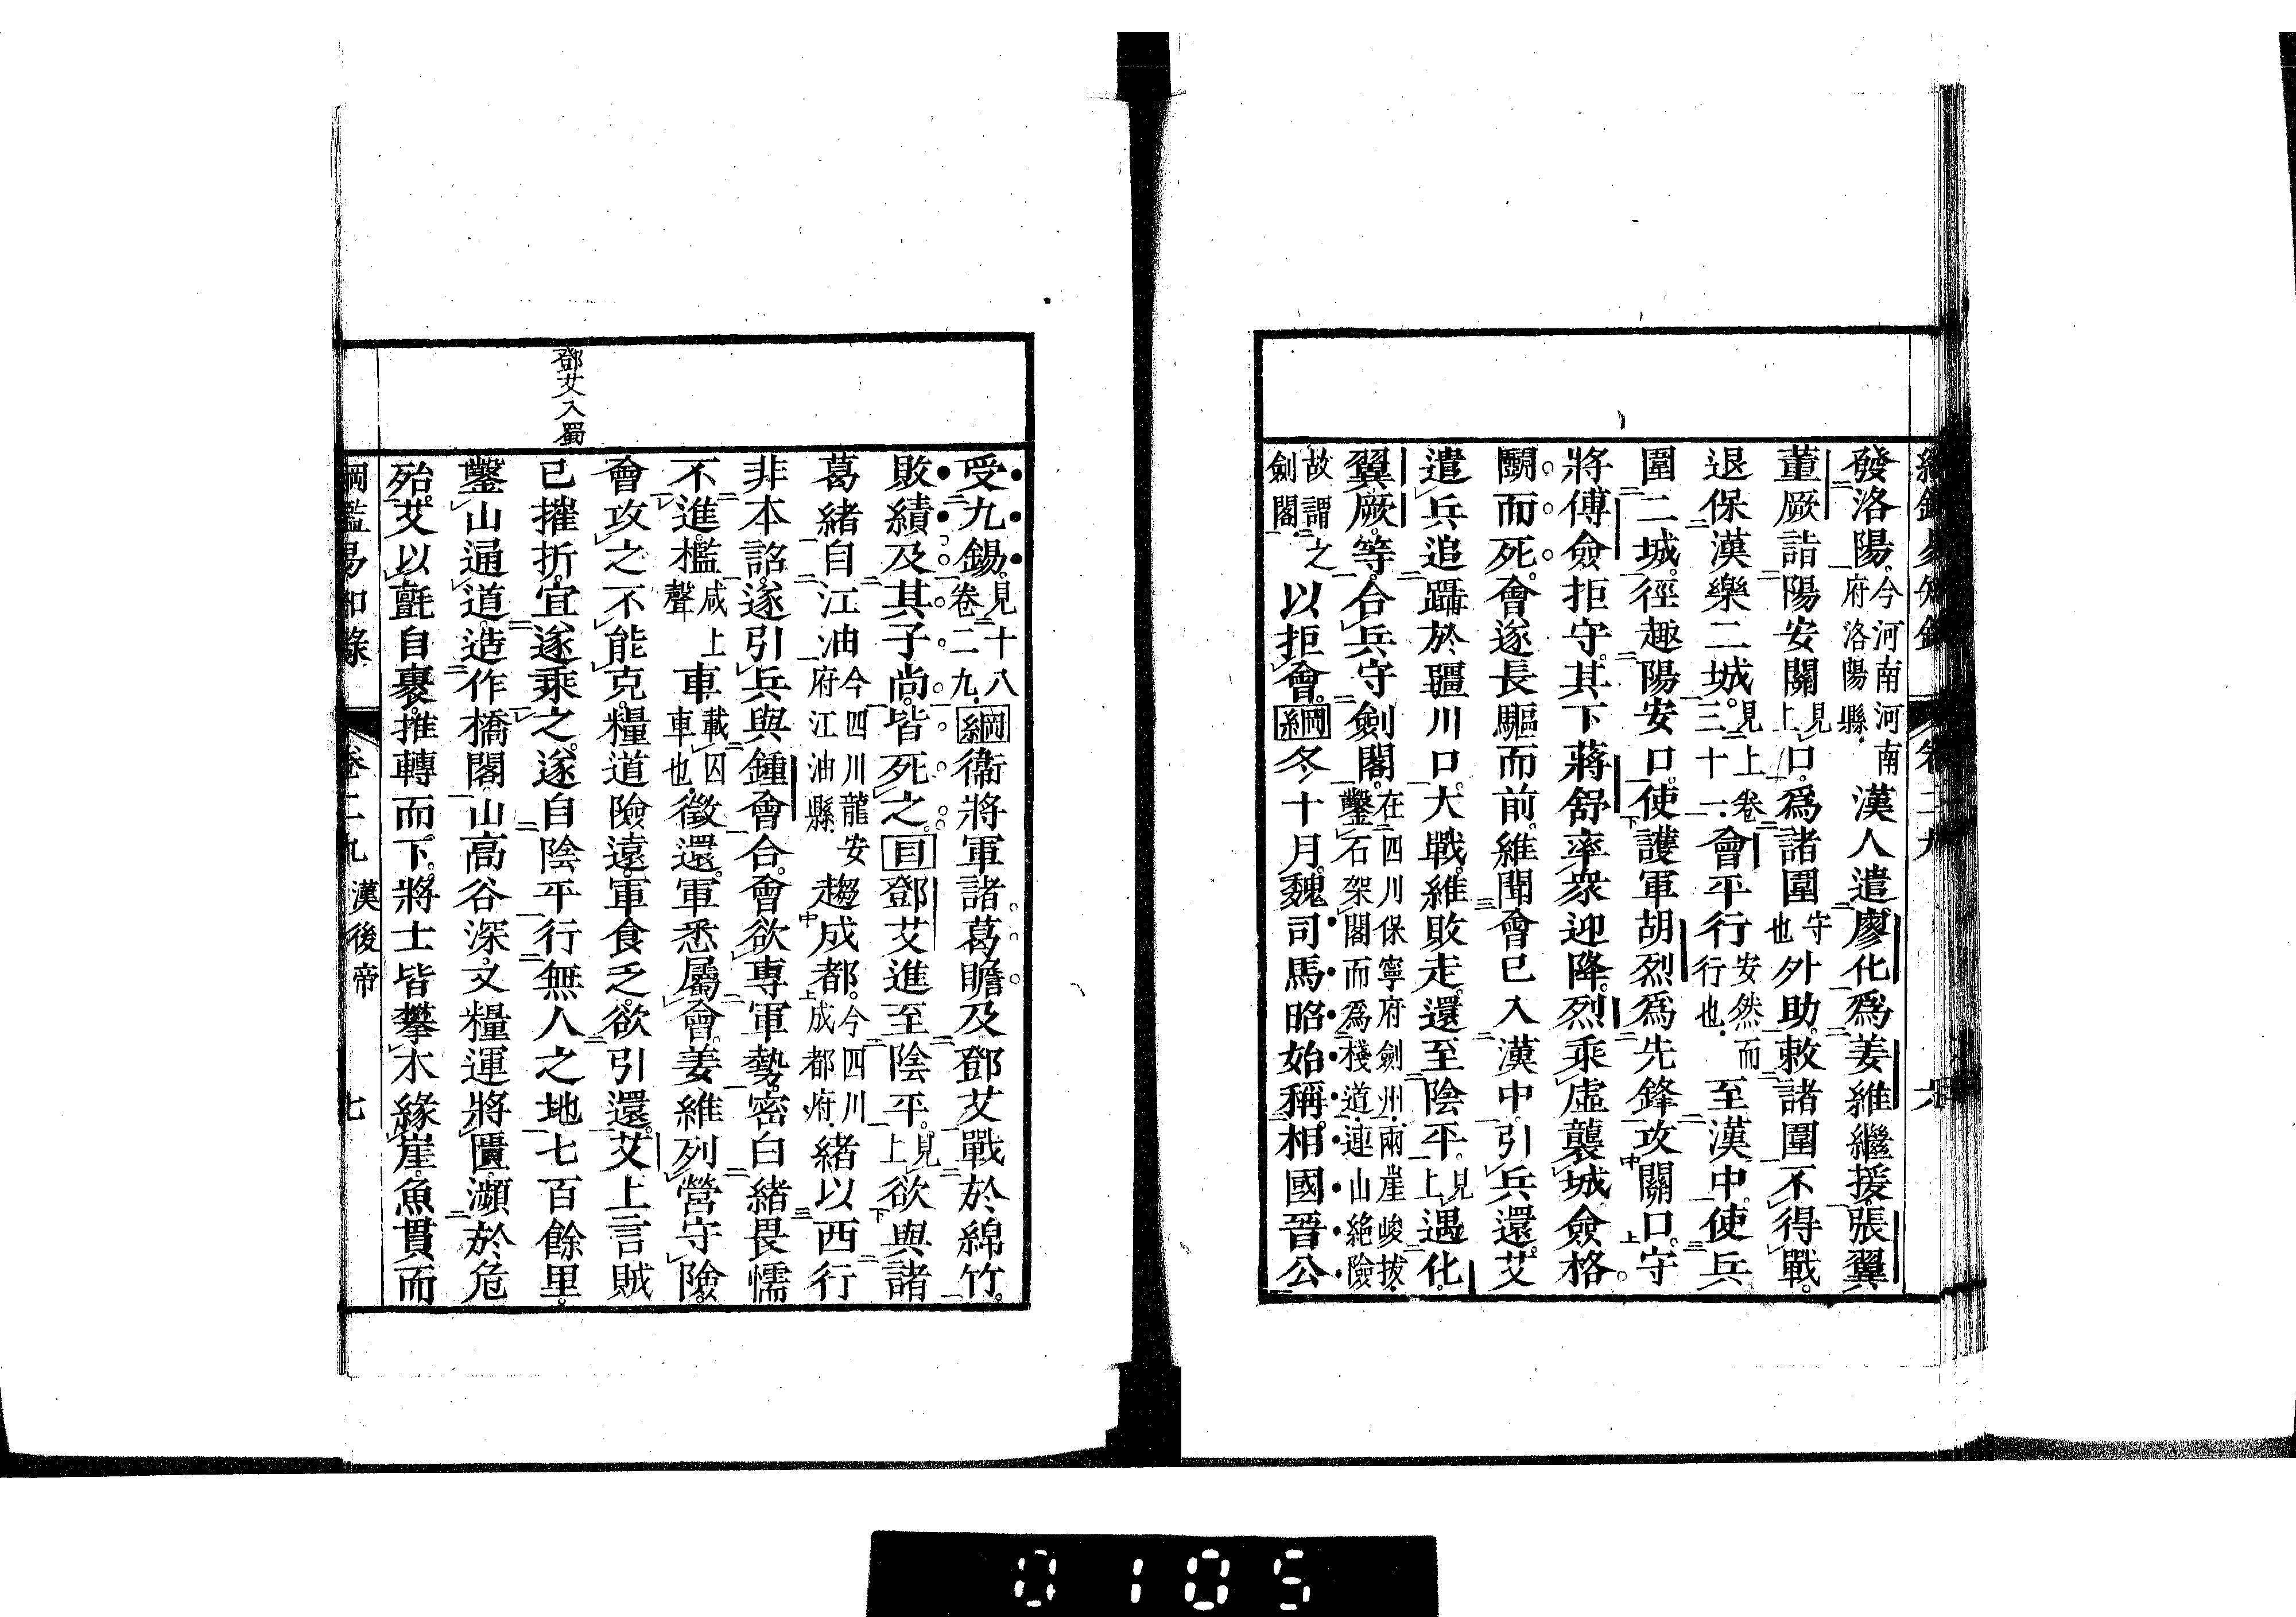 綱鑑易知錄 卷二九 六
發洛陽今河南河南府洛陽縣漢人遣廖化爲姜維繼援張翼
董厥詣陽安關見上口爲諸圍守也外助敕諸圍不得戰
退保漢樂二城見上卷三十一會平行安然而行也至漢中使兵
圍二城徑趣陽安口使護軍胡烈爲先鋒攻關口守
將傅僉拒守其下蔣舒率衆迎降烈乘虛襲城僉格
鬭而死會遂長驅而前維聞會已入漢中引兵還艾
遣兵追躡於疆川口大戰維敗走還至陰平見上遇化
翼厥等合兵守劍閣在四川保寧府劍州兩崖峻拔鑿石架閣而爲棧道連山絶險
故謂之劍閣以拒會綱冬十月魏司馬昭始稱相國晉公
受九錫見十八卷二九綱衞將軍諸葛瞻及鄧艾戰於綿竹
敗績及其子尚皆死之目鄧艾進至陰平見上欲與諸
葛緒自江油今四川龍安府江油縣趨成都今四川成都府緒以西行
非本詔遂引兵與鍾會合會欲專軍勢密白緒畏懦
不進檻咸上聲車載囚車也徵還軍悉屬會姜維列營守險
會攻之不能克糧道險遠軍食乏欲引還艾上言賊
已摧折宜遂乘之遂自陰平行無人之地七百餘里
鑿山通道造作橋閣山高谷深又糧運將匱瀕於危
殆艾以氈自裹推轉而下將士皆攀木緣崖魚貫而
鄧艾入蜀
綱鑑易知錄 卷二九 漢後帝 七
0105